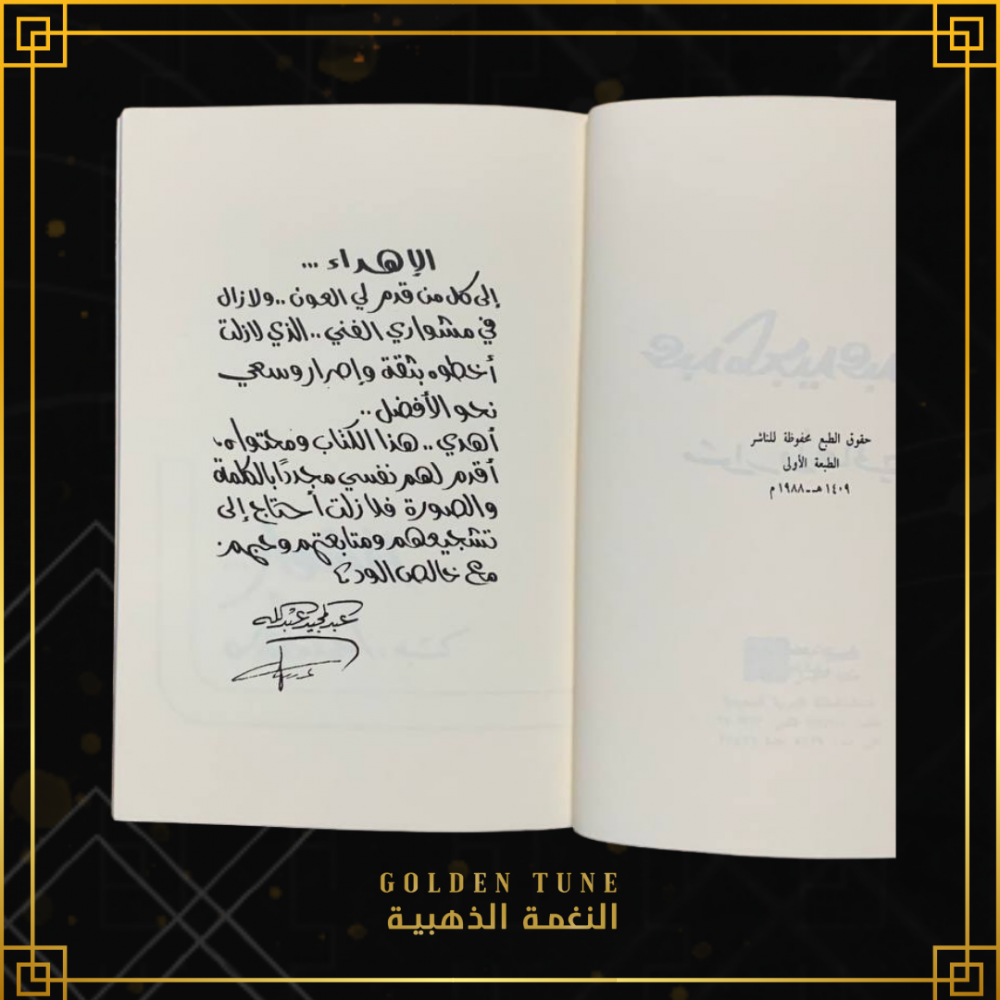 حقوق الطبع محفوظة للناشر
الطبعة الأولى
١٤٠٩ هـ - ١٩٨٨ م
الإهداء ...
إلى كل من قدم لي العون .. ولازال
في مشواري الفني .. الذي لازلت
أخطوه بثقة وإصرار وسعي
نحو الأفضل ..
أهدي .. هذا الكتاب ومحتواه،
أقدم لهم نفسي مجددًا بالكلمة
والصورة فلازلت أحتاج إلى
تشجيعهم ومتابعتهم وحبهم.
مع خالص الود،
عبدالمجيد عبدالله
GOLDEN TUNE
النغمة الذهبية